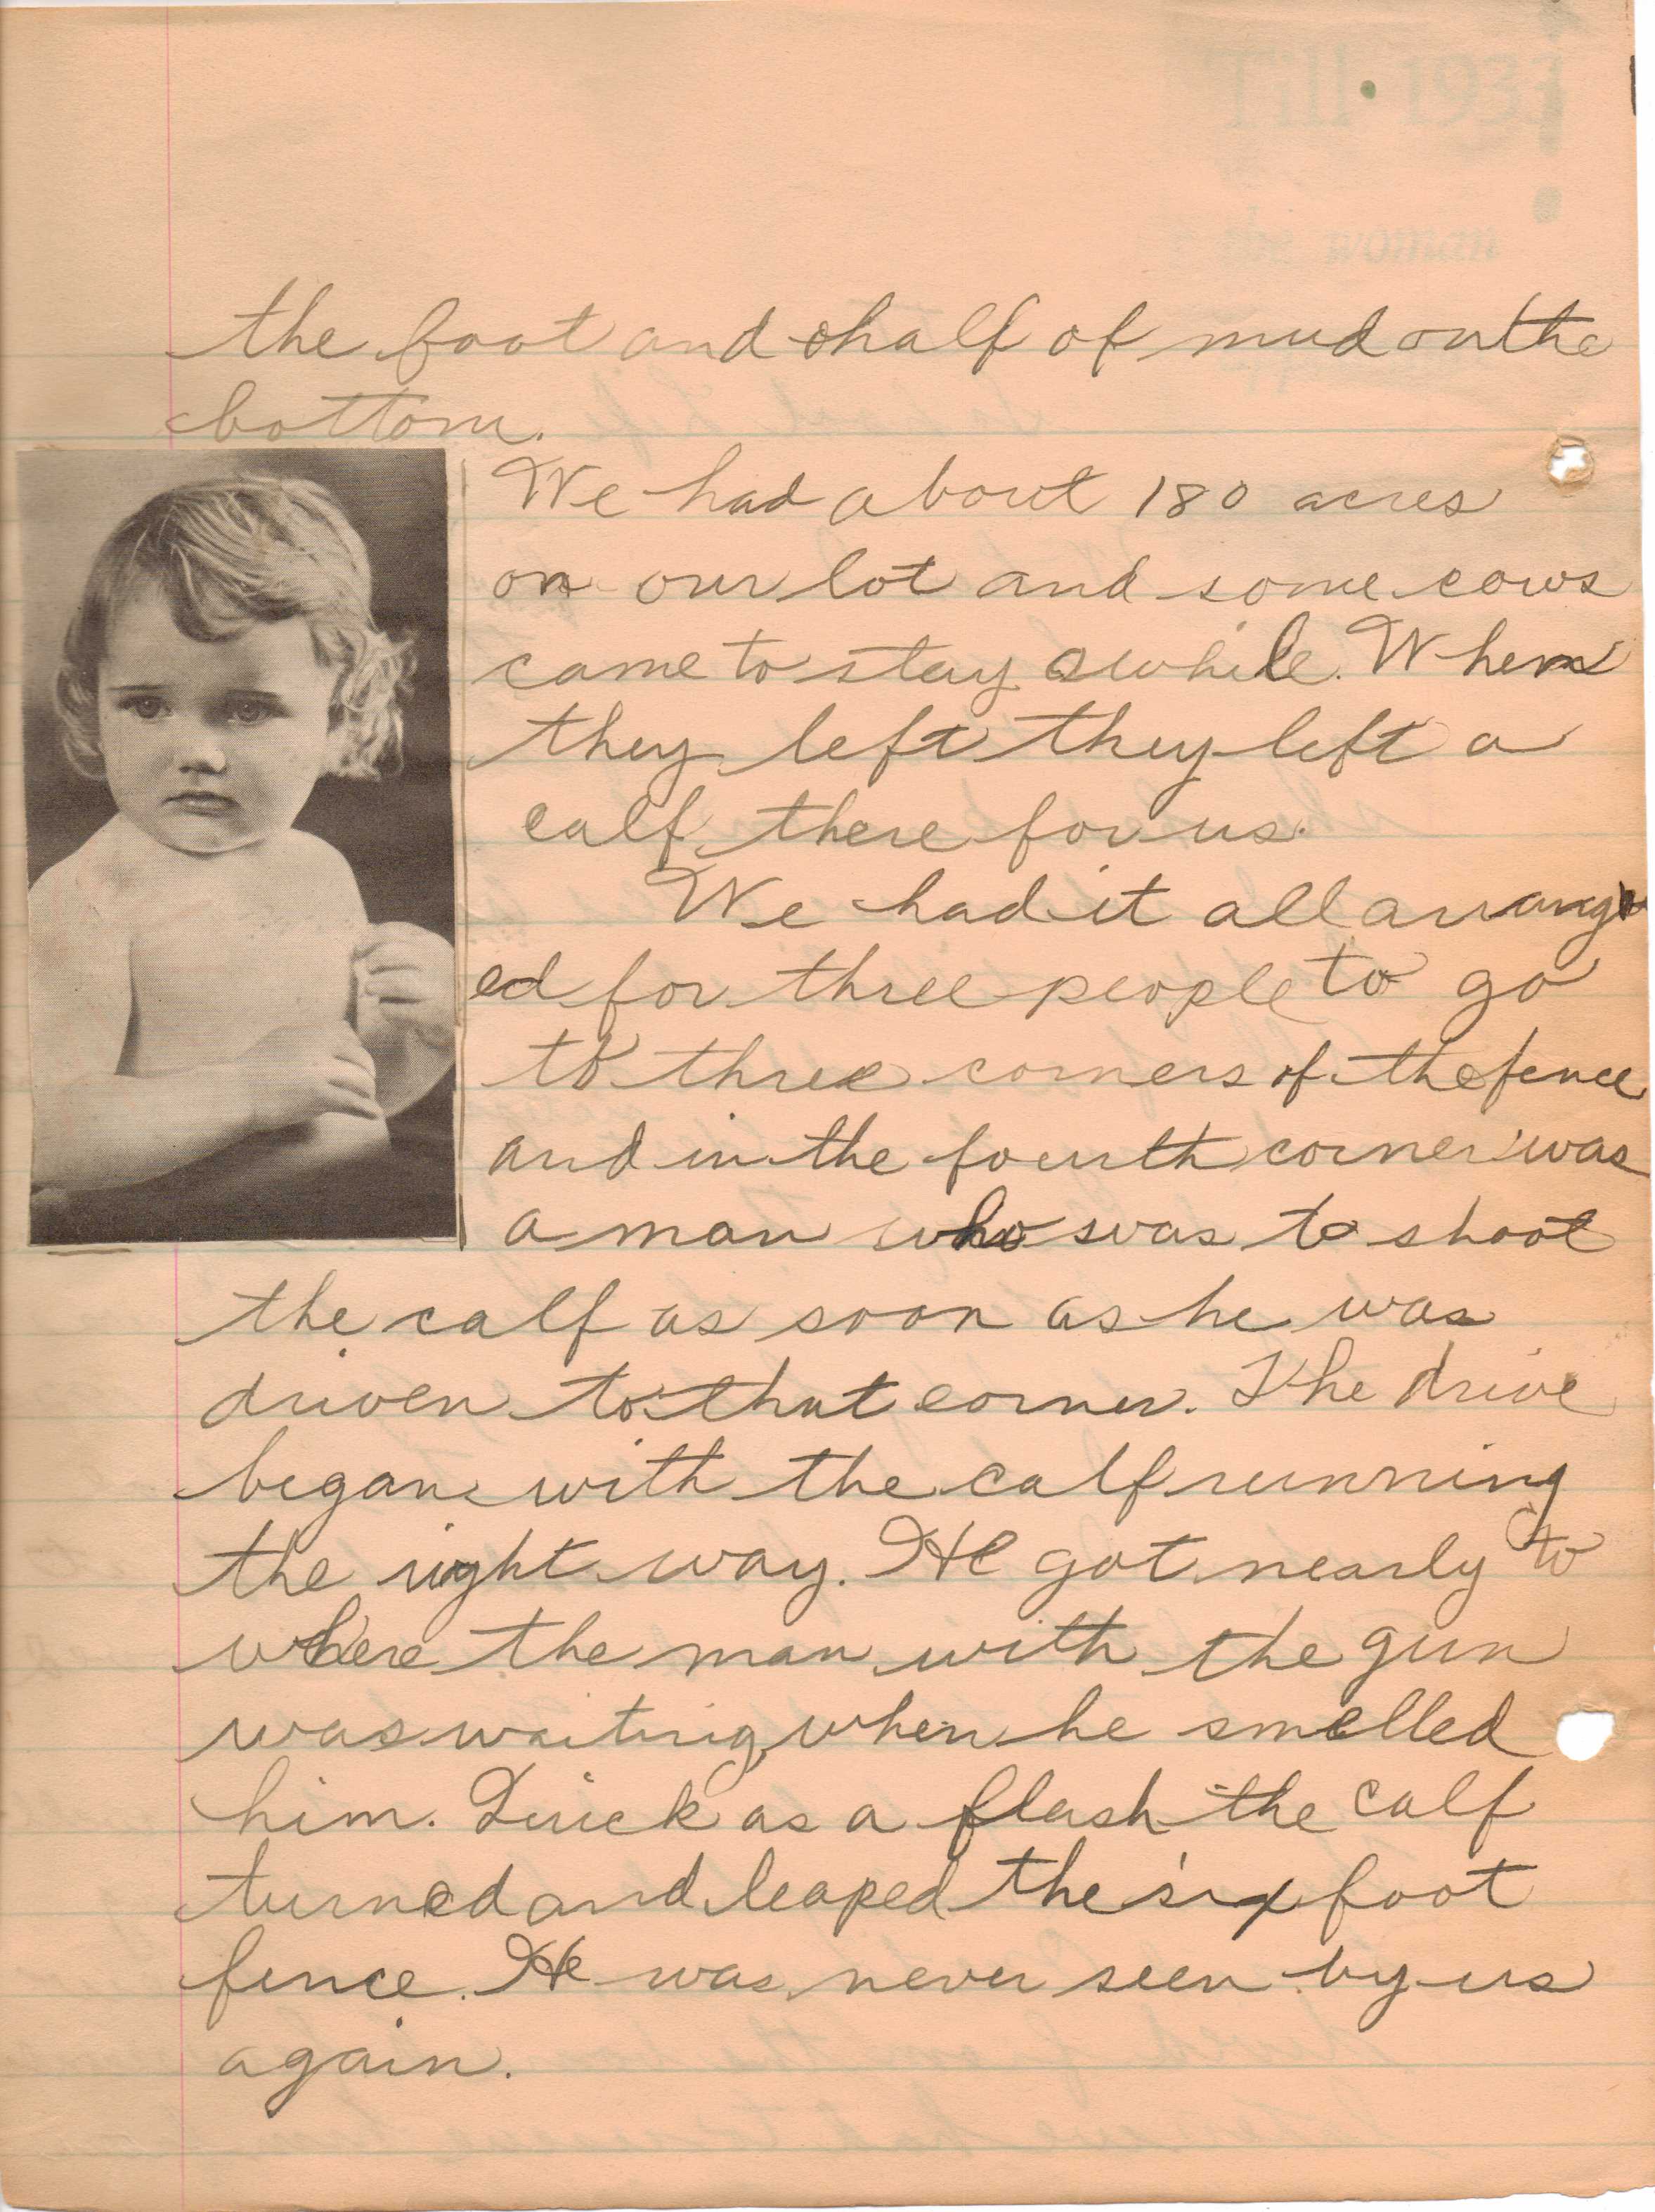 Till 193
the woman
the foot and ahalf of mud on the
bottom.
We had about 180 acres
on our lot and some cows
came to stay awhile. When
they left they left a
calf there for us.
We had it all arrang
ed for three people to go
to three corners of the fence
and in the fourth corner was
a man who was to shoot
the calf as soon as he was
driven to that corner. The drive
began with the calf running
the right way. He got nearly to
where the man with the gun
was waiting when he smelled
him. Quick as a flash the calf
turned and leaped the six foot
fence. He was never seen by us
again.